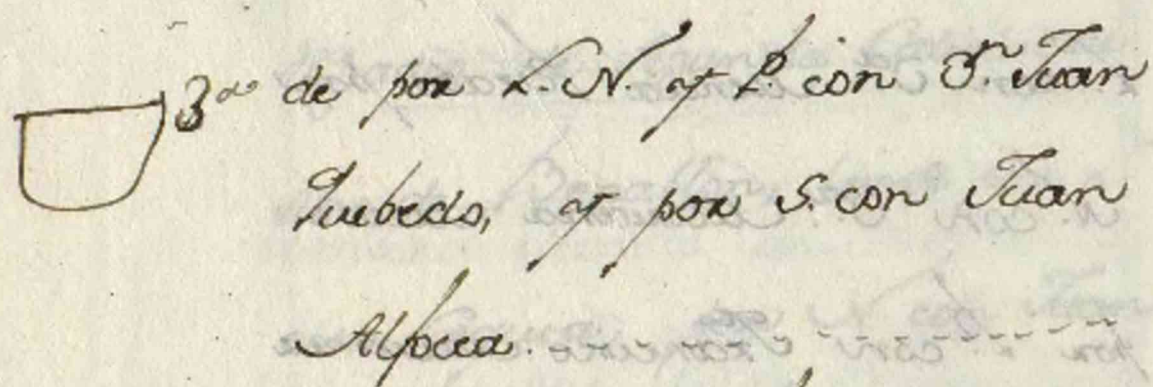 de por L. N. y P. con D.n Juan
Quebedo, y por S. con Juan
Alfocea.